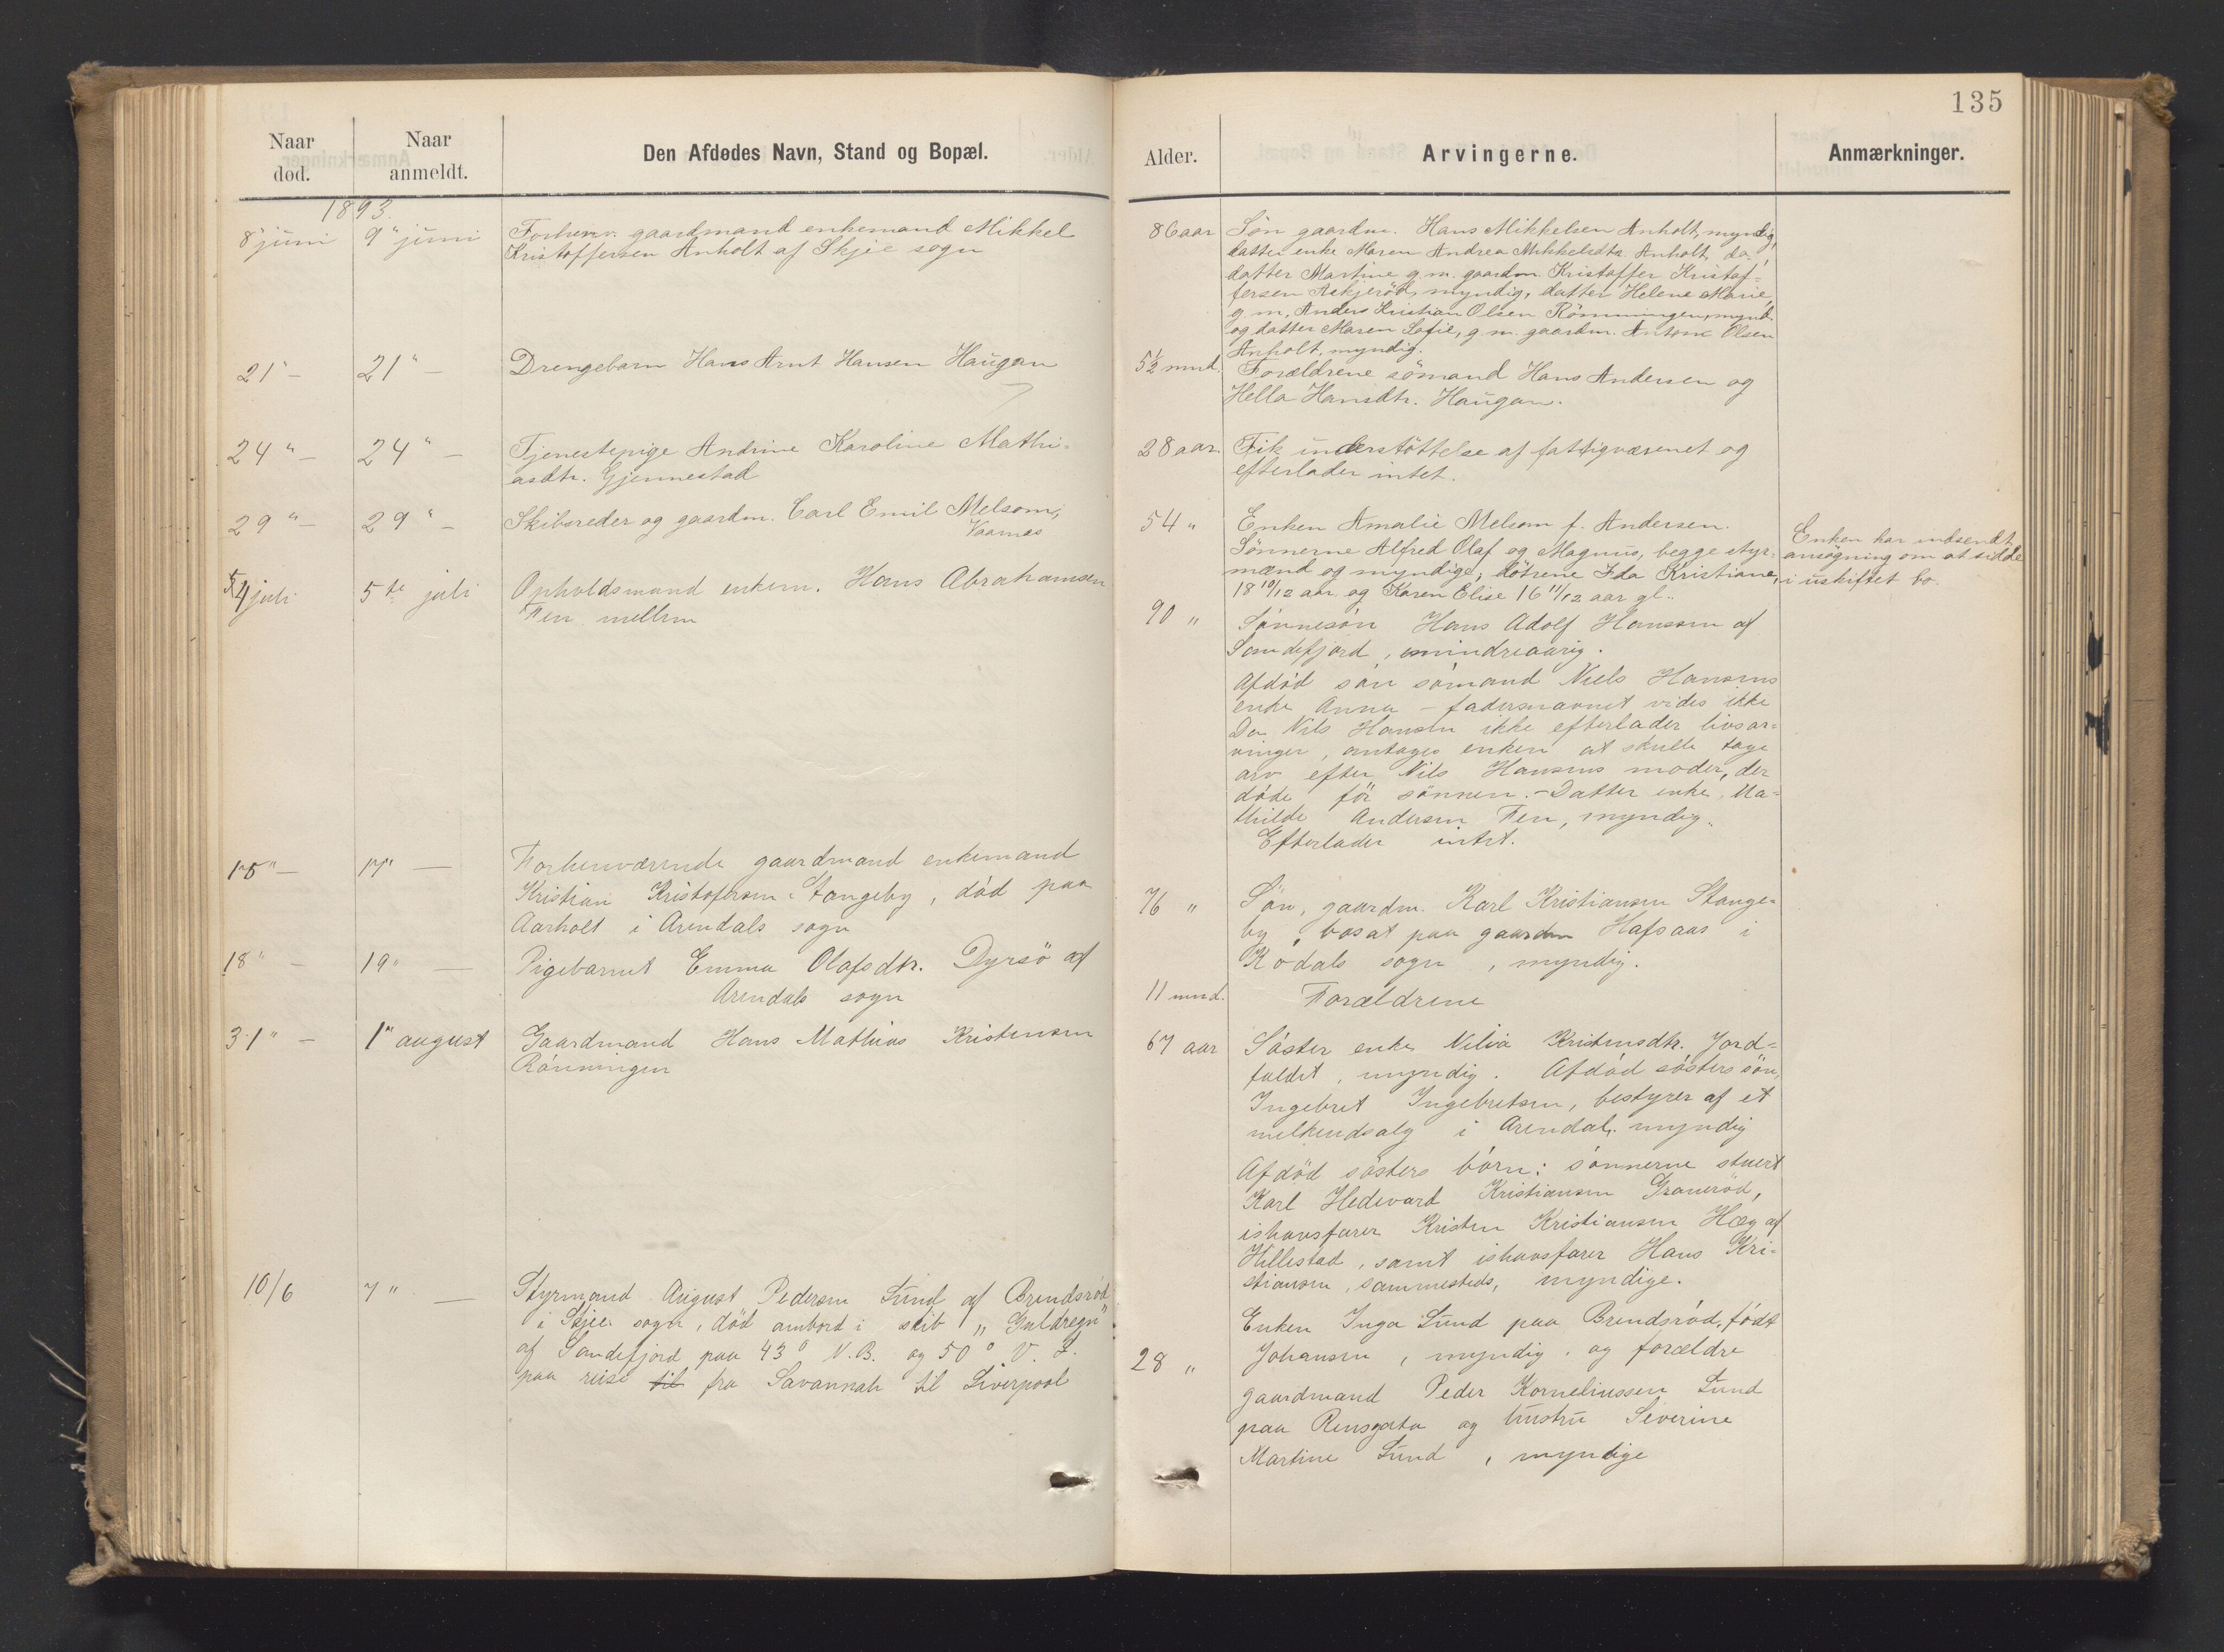 135
Naar død.
Naar anmeldt.
Den Afdødes Navn, Stand og Bopæl.
Alder.
Arvingerne.
Anmærkninger.
1893.
8" juni
9" juni
Forhenv. gaardmand enkemand Mikkel
Kristoffersen Anholt af Skjee sogn
86 aar
Søn gaardm. Hans Mikkelsen Anholt, myndig,
datter enke Maren Andrea Mikkelsdtr. Anholt, do,
datter Martine g. m. gaardm. Kristoffer Kristof-
fersen Askjerød, myndig, datter Helene Marie,
g. m. Anders Kristian Olsen Rønningen, mynd.
og datter Maren Sofie, g. m. gaardm. Anton Olsen
Anholt, myndig.
21" –
21" –
Drengebarn Hans Arnt Hansen Haugan
5½ mnd.
Forældrene sømand Hans Andersen og
Hella Hansdtr. Haugan.
24" –
24" –
Tjenestepige Andrine Karoline Mathi-
asdtr. Gjennestad
28 aar.
Fik understøttelse af fattigvæsenet og
efterlader intet.
29" –
29" –
Skibsreder og gaardm. Carl Emil Melsom,
Vaarnæs
54 "
Enken Amalie Melsom f. Andersen.
Sønnerne Alfred Olaf og Magnus, begge styr-
mænd og myndige, døtrene Ida Kristiane,
18 10/12 aar og Karen Elise 16 11/12 aar gl.
Enken har indsendt
ansøgning om at sidde
i uskiftet bo.
4 juli
5te juli
Opholdsmand enkem. Hans Abrahamsen
Fen mellem
90 "
Sønnesøn Hans Adolf Hansen af
Sandefjord, mindreaarig.
Afdød søn sømand Niels Hansens
enke Anna – fadersnavnet vides ikke
Da Nils Hansen ikke efterlader livsar-
vinger, antages enken at skulle tage
arv efter Nils Hansens moder, der
døde før sønnen. – Datter enke Ma-
thilde Andersen Fen, myndig.
Efterlader intet.
15" –
17" –
Forhenværende gaardmand enkemand
Kristian Kristofersen Stangeby, død paa
Aarholt i Arendals sogn
76 "
Søn, gaardm. Karl Kristiansen Stange-
by, bosat paa gaarden Hafsaas i
Kodals sogn, myndig.
18" –
19" –
Pigebarnet Emma Olafsdtr. Dyrsø af
Arendals sogn
11 mnd.
Forældrene
31" –
1" august
Gaardmand Hans Mathias Kristensen
Rønningen
67 aar
Søster enke Nilia Kristensdtr. Jord-
faldet, myndig. Afdød søsters søn,
Ingebret Ingebretsen, bestyrer af et
melkeudsalg i Arendal, myndig
Afdød søsters børn: sønnerne stuert
Karl Hedevard Kristiansen Granerød,
ishavsfarer Kristen Kristiansen Hæg af
Hillestad, samt ishavsfarer Hans Kri-
stiansen, sammesteds, myndige.
10/6
7" –
Styrmand August Pedersen Lund af Brendsrød
i Skjee sogn, død ombord i skib „Guldregn"
af Sandefjord paa 43° N.B. og 50° V. L.
paa reise til fra Savannah til Liverpool
28 "
Enken Inga Lund paa Brendsrød, født
Johansen, myndig, og forældre
gaardmand Peder Korneliussen Lund
paa Rensgata og hustru Severine
Martine Lund, myndige